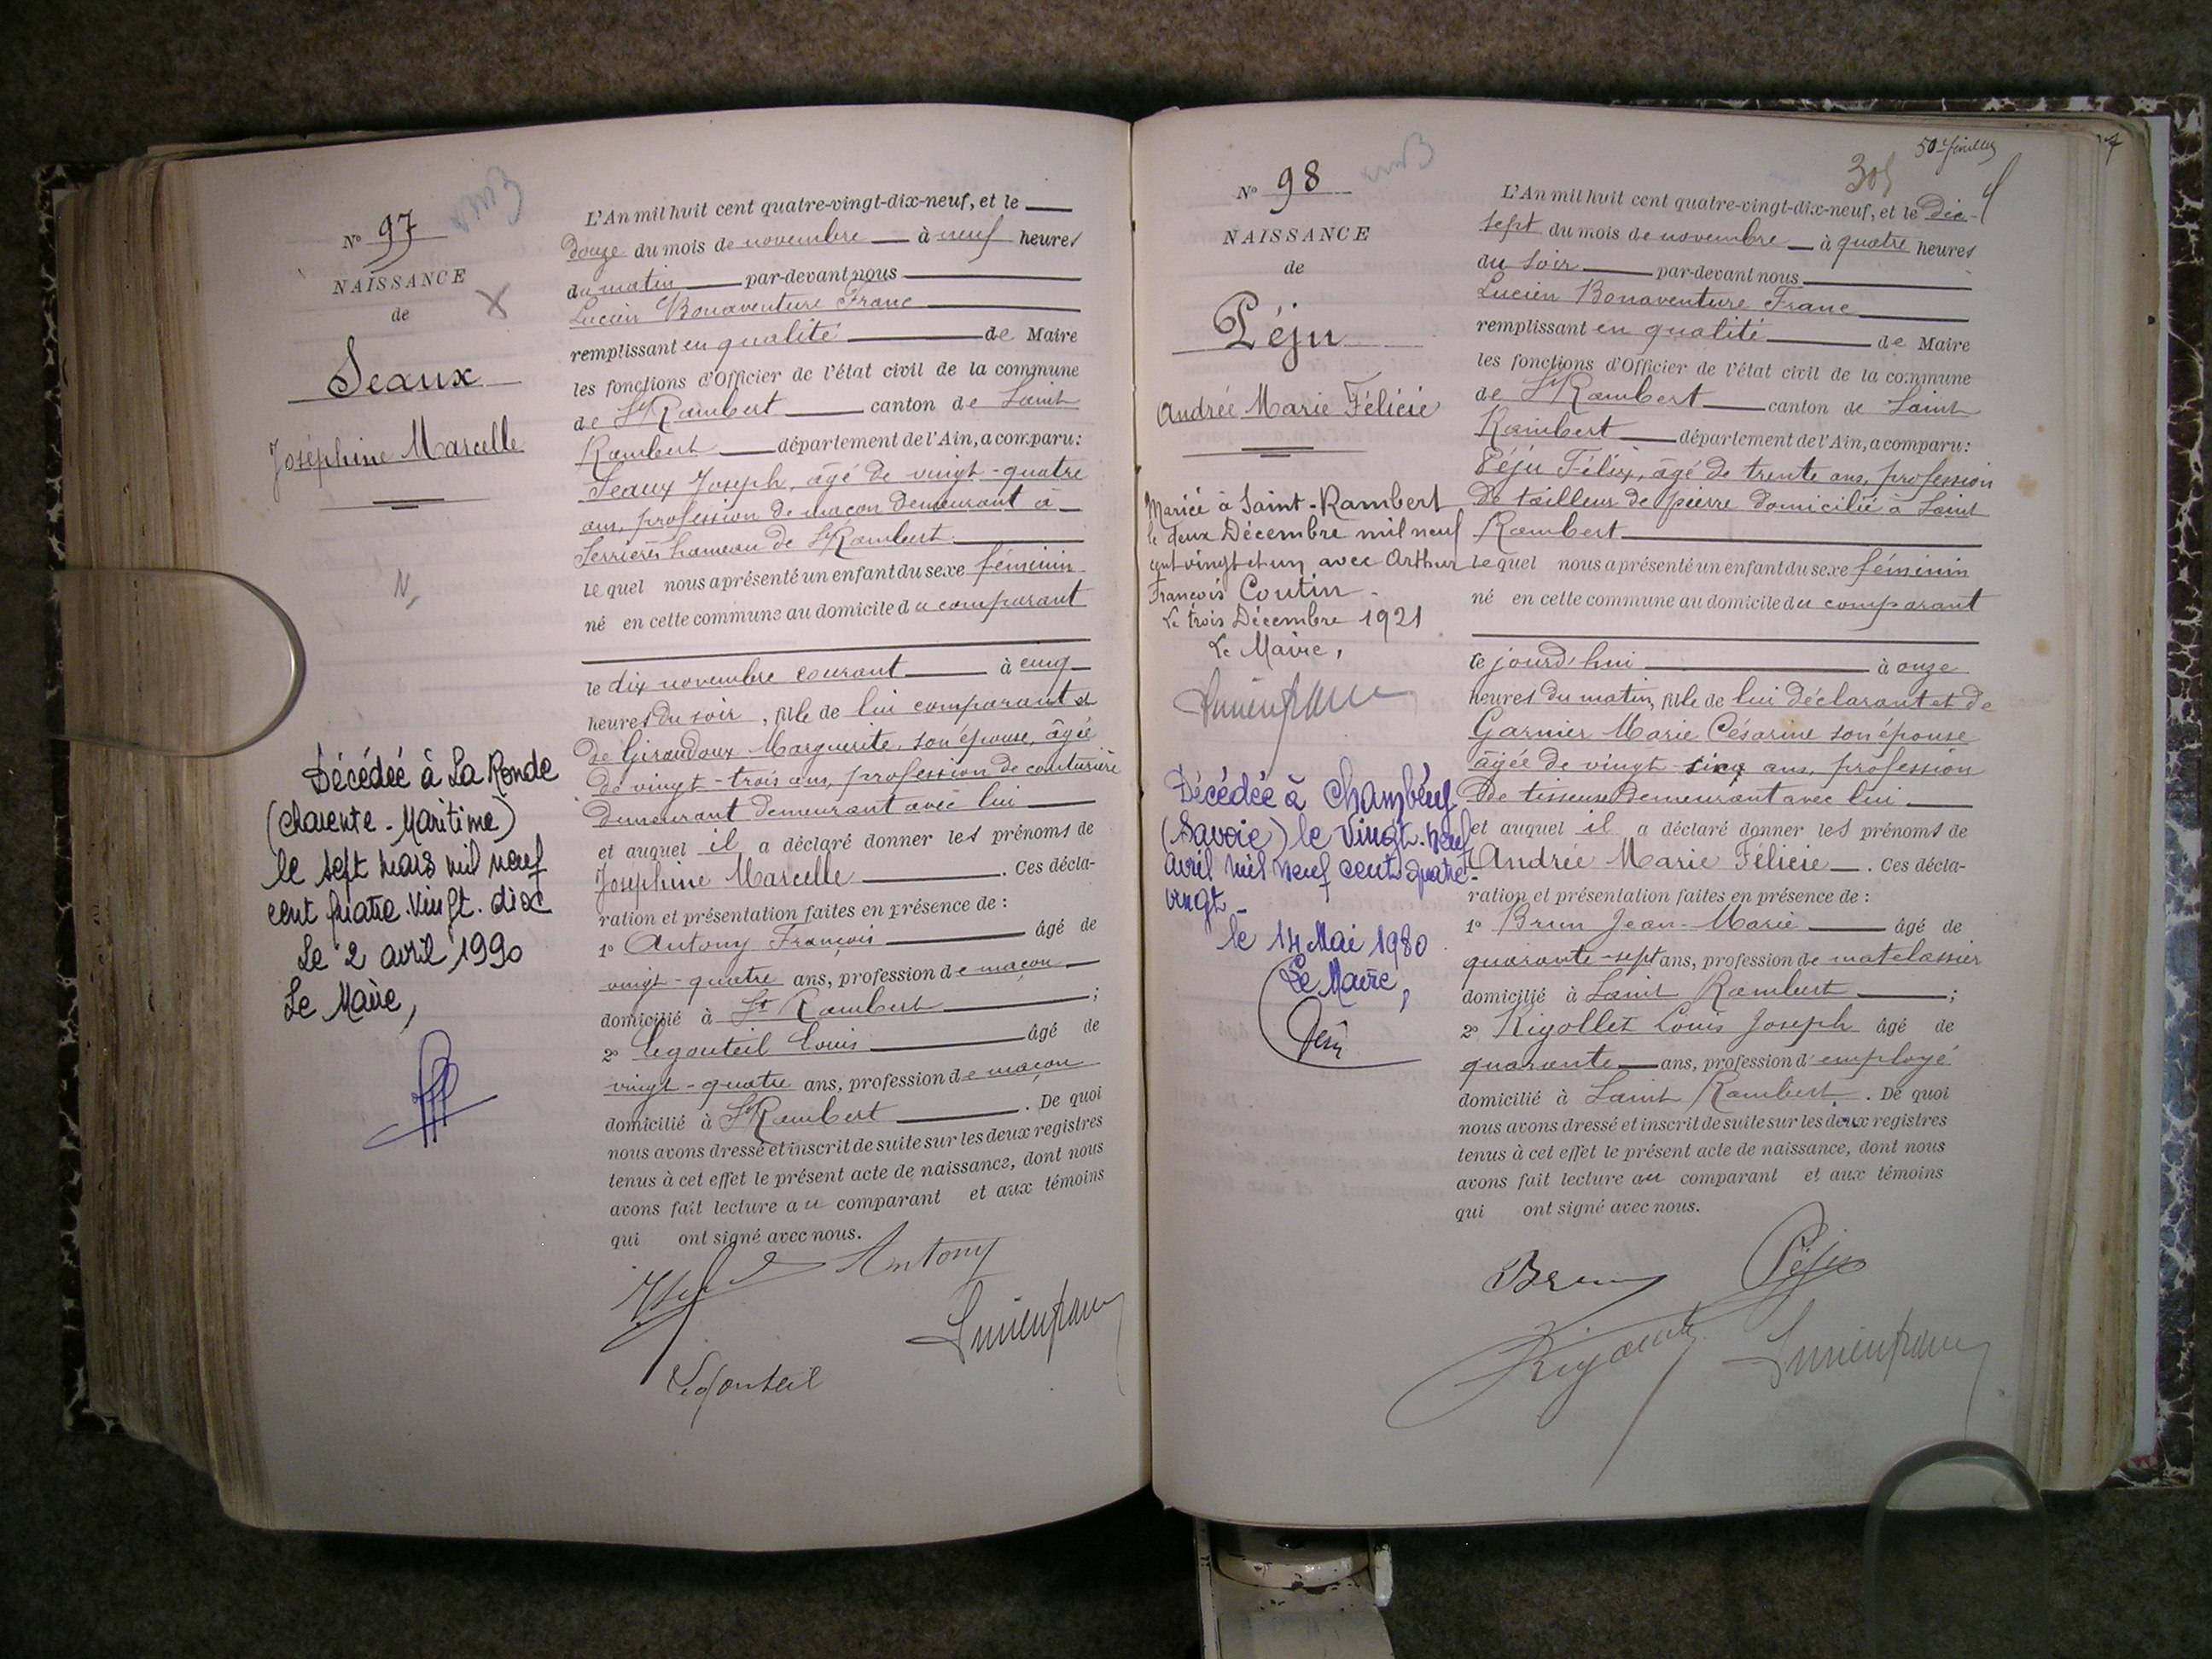 N° 97
NAISSANCE
de
Seaux
Joséphine Marcelle
Décédée à La Ronde
(Charente-Maritime)
le sept mars mil neuf
cent quatre-vingt-dix
Le 2 avril 1990
Le Maire,
L'An mil huit cent quatre-vingt-dix-neuf, et le
douze du mois de novembre à neuf heures
du matin par-devant nous
Lucien Bonaventure Franc
remplissant en qualité de Maire
les fonctions d'Officier de l'état civil de la commune
de St Rambert canton de Saint
Rambert département de l'Ain, a comparu:
Seaux Joseph, âgé de vingt-quatre
ans, profession de maçon demeurant à
Serrières hameau de St Rambert.
lequel nous a présenté un enfant du sexe féminin
né en cette commune au domicile du comparant
le dix novembre courant à cinq
heures du soir, fille de lui comparant et
de Giraudoux Marguerite, son épouse, âgée
de vingt-trois ans, profession de couturière
demeurant demeurant avec lui
et auquel il a déclaré donner les prénoms de
Joséphine Marcelle. Ces décla-
ration et présentation faites en présence de :
1° Antony François âgé de
vingt-quatre ans, profession de maçon
domicilié à St Rambert ;
2° Legouteil Louis âgé de
vingt-quatre ans, profession de maçon
domicilié à St Rambert. De quoi
nous avons dressé et inscrit de suite sur les deux registres
tenus à cet effet le présent acte de naissance, dont nous
avons fait lecture au comparant et aux témoins
qui ont signé avec nous.
Antony
Lucien franc
Legouteil
50e feuillet
305
N° 98
NAISSANCE
de
Péju
Andrée Marie Félicie
Mariée à Saint-Rambert
le deux Décembre mil neuf
cent vingt et un avec Arthur
François Coutin.
Le trois Décembre 1921
Le Maire,
Lucien franc
Décédée à
(Savoie) le vingt-neuf
avril mil neuf cent quatre-
vingt
le 14 Mai 1980
Le Maire,
L'An mil huit cent quatre-vingt-dix-neuf, et le dix-
sept du mois de novembre à quatre heures
du soir par-devant nous
Lucien Bonaventure Franc
remplissant en qualité de Maire
les fonctions d'Officier de l'état civil de la commune
de St Rambert canton de Saint
Rambert département de l'Ain, a comparu:
Péju Félix, âgé de trente ans, profession
de tailleur de pierre domicilié à Saint
Rambert
lequel nous a présenté un enfant du sexe féminin
né en cette commune au domicile du comparant
le jourd'hui à onze
heures du matin, fille de lui déclarant et de
Garnier Marie Césarine son épouse
âgée de vingt-cinq ans, profession
de tisseuse demeurant avec lui
et auquel il a déclaré donner les prénoms de
Andrée Marie Félicie. Ces décla-
ration et présentation faites en présence de :
1° Brun Jean-Marie âgé de
quarante-sept ans, profession de matelassier
domicilié à Saint Rambert ;
2° Rigollet Louis Joseph âgé de
quarante ans, profession d'employé
domicilié à Saint Rambert. De quoi
nous avons dressé et inscrit de suite sur les deux registres
tenus à cet effet le présent acte de naissance, dont nous
avons fait lecture au comparant et aux témoins
qui ont signé avec nous.
Brun Péju
Lucien franc